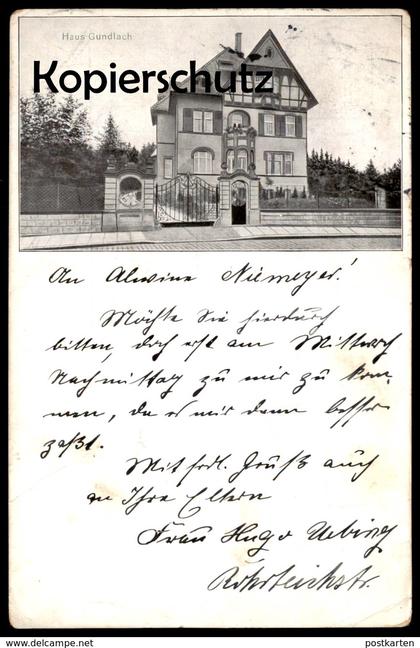 Haus Gundlach
Kopierschutz
An Alwine Niemeyer!
Möchte Sie hierdurch
bitten, doch erst am Mittwoch
Nachmittag zu mir zu kom-
men, da es mir dann besser
paßt.
Mit frdl. Gruß auch
an Ihre Eltern
Frau Hugo Uebing
Rohrteichstr.
postkarten